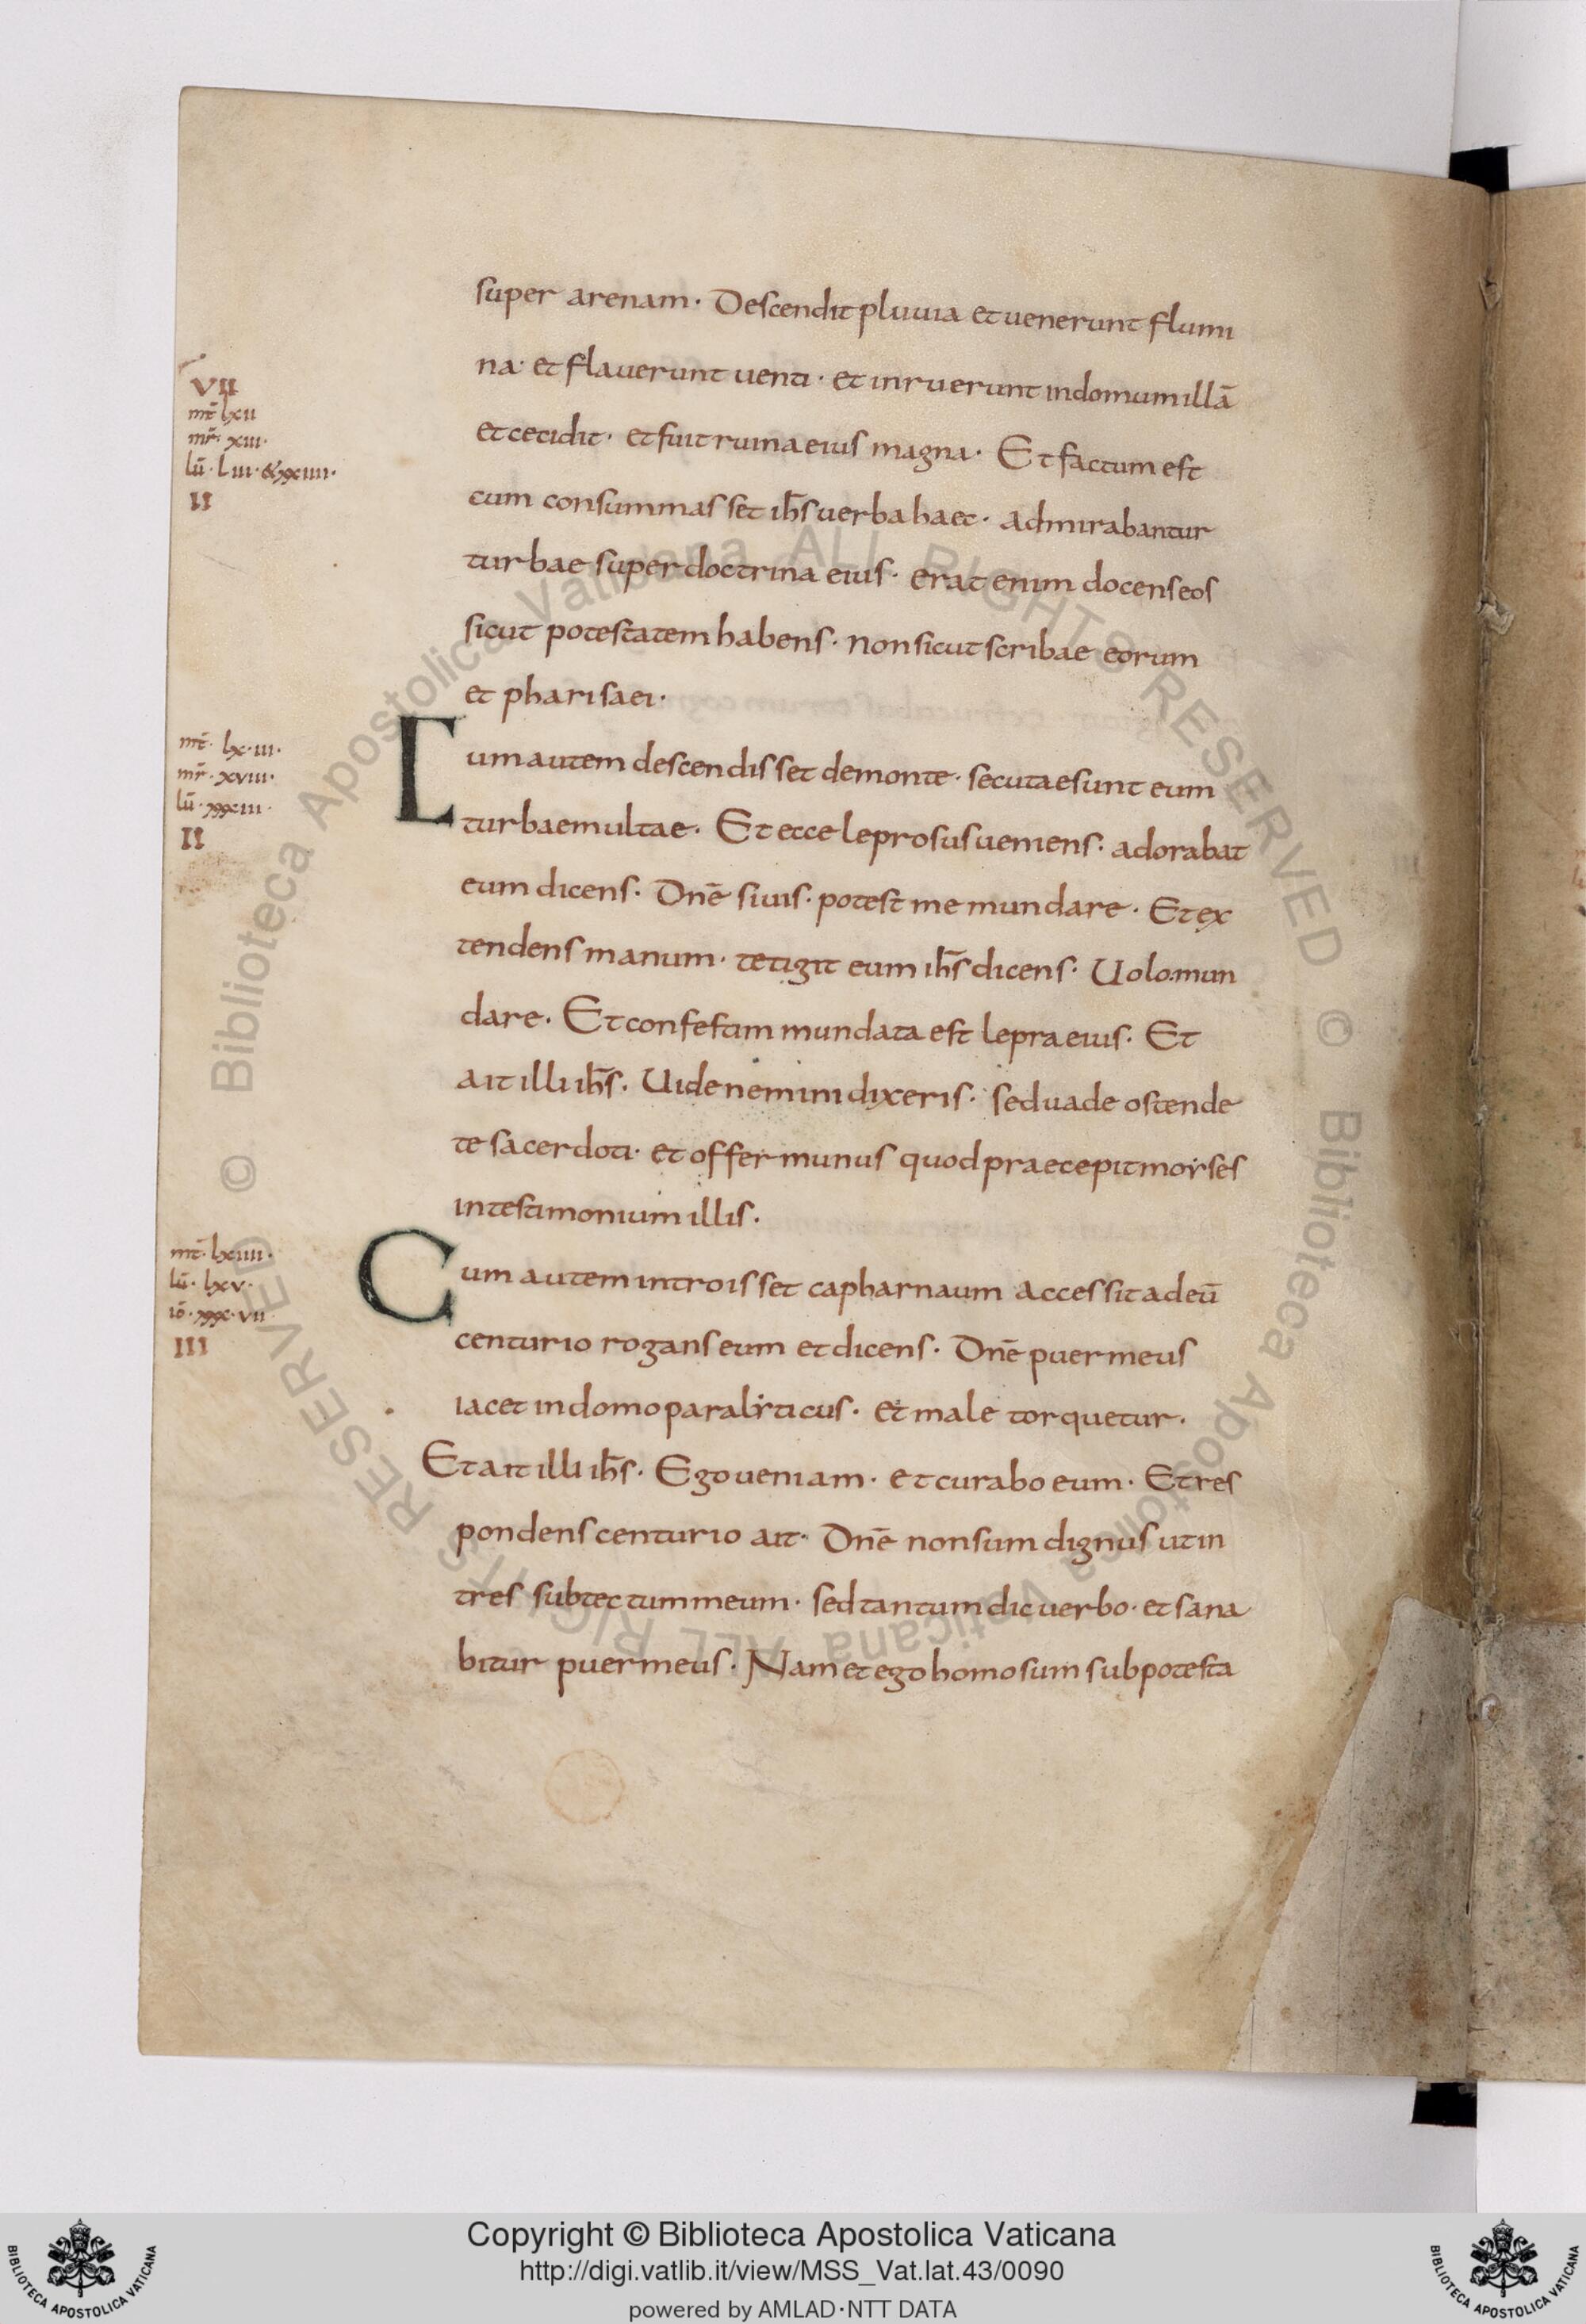 super arenam· Descendit pluuia et uenerunt flumi
na· et flauerunt uenti· et inruerunt in domum illā
et cecidit· et fuit ruina eius magna· Et factum est
cum consummasset ih̄s uerba haec· admirabantur
turbae super doctrina eius· erat enim docens eos
sicut potestatem habens· non sicut scribae eorum
et pharisaei·
Cum autem descendisset de monte· secutae sunt eum
turbae multae· Et ecce leprosus ueniens· adorabat
eum dicens· Dnē si uis· potest me mundare· Et ex
tendens manum· tetigit eum ih̄s dicens· Uolo· mun
dare· Et confestim mundata est lepra eius· Et
ait illi ih̄s· Uide nemini dixeris· sed uade ostende
te sacerdoti· et offer munus quod praecepit moyses
in testimonium illis·
Cum autem introisset capharnaum accessit ad eū
centurio rogans eum et dicens· Dnē puer meus
iacet in domo paralyticus· et male torquetur·
Et ait illi ih̄s· Ego ueniam· et curabo eum· Et res
pondens centurio ait· Dnē non sum dignus ut in
tres sub tectum meum· sed tantum dic uerbo· et sana
bitur puer meus· Nam et ego homo sum sub potesta
VII
mt̄ lxii
mr̄· xiii·
lū· Liii· & xxiiii·
II
mt̄· lx·iii·
mr̄· xviii·
lū· xxxiii·
II
mt̄· lxiiii·
lū· lxv·
iō· xxx·vii
III
© Biblioteca Apostolica Vaticana ALL RIGHTS RESERVED
© Biblioteca Apostolica Vaticana ALL RIGHTS RESERVED
Copyright © Biblioteca Apostolica Vaticana
http://digi.vatlib.it/view/MSS_Vat.lat.43/0090
powered by AMLAD·NTT DATA
BIBLIOTECA APOSTOLICA VATICANA
BIBLIOTECA APOSTOLICA VATICANA